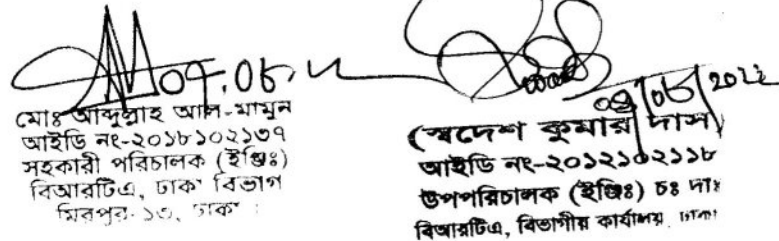 মোঃ আব্দুল্লাহ আল-মামুন
আইডি নং-২০১৮১০২১৩৭
সহকারী পরিচালক (ইঞ্জিঃ)
বিআরটিএ, ঢাকা বিভাগ
মিরপুর-১৩, ঢাকা
(স্বদেশ কুমার দাস)
আইডি নং-২০১২১০২১১৮
উপপরিচালক (ইঞ্জিঃ) চঃ দাঃ
বিআরটিএ, বিভাগীয় কার্যালয়, ঢাকা